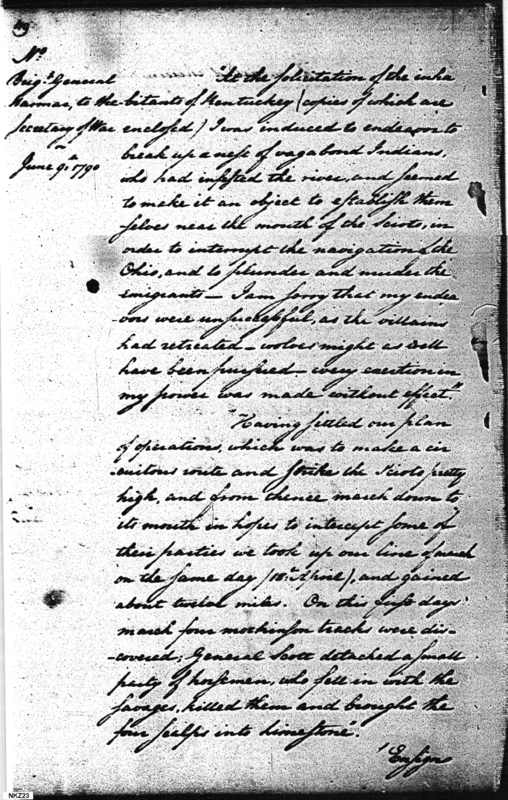 49
No
Brigr. General
Harmar, to the
Secretary of War
June 9th 1790
"At the solicitation of the inha
-bitants of Kentuckey (copies of which are
enclosed) I was induced to endeavor to
break up a nest of vagabond Indians,
who had infested the river, and seemed
to make it an object to establish them
selves near the mouth of the Scioto, in
order to interrupt the navigation of the
Ohio, and to plunder and murder the
emigrants — I am sorry that my endea
-vors were unsuccessful, as the villains
had retreated — wolves might as well
have been pursued — every exertion in
my power was made without effect."
"Having settled our plan
of operations, which was to make a cir
-cuitous route and strike the Scioto pretty
high, and from thence march down to
its mouth in hopes to intercept some of
their parties we took up our line of march
on the same day (18th April), and gained
about twelve miles. On this first days
march four mockinson tracks were dis-
-covered; General Scott detached a small
party of horsemen, who fell in with the
savages, killed them and brought the
four scalps into limestone".
"Ensign
NKZ23